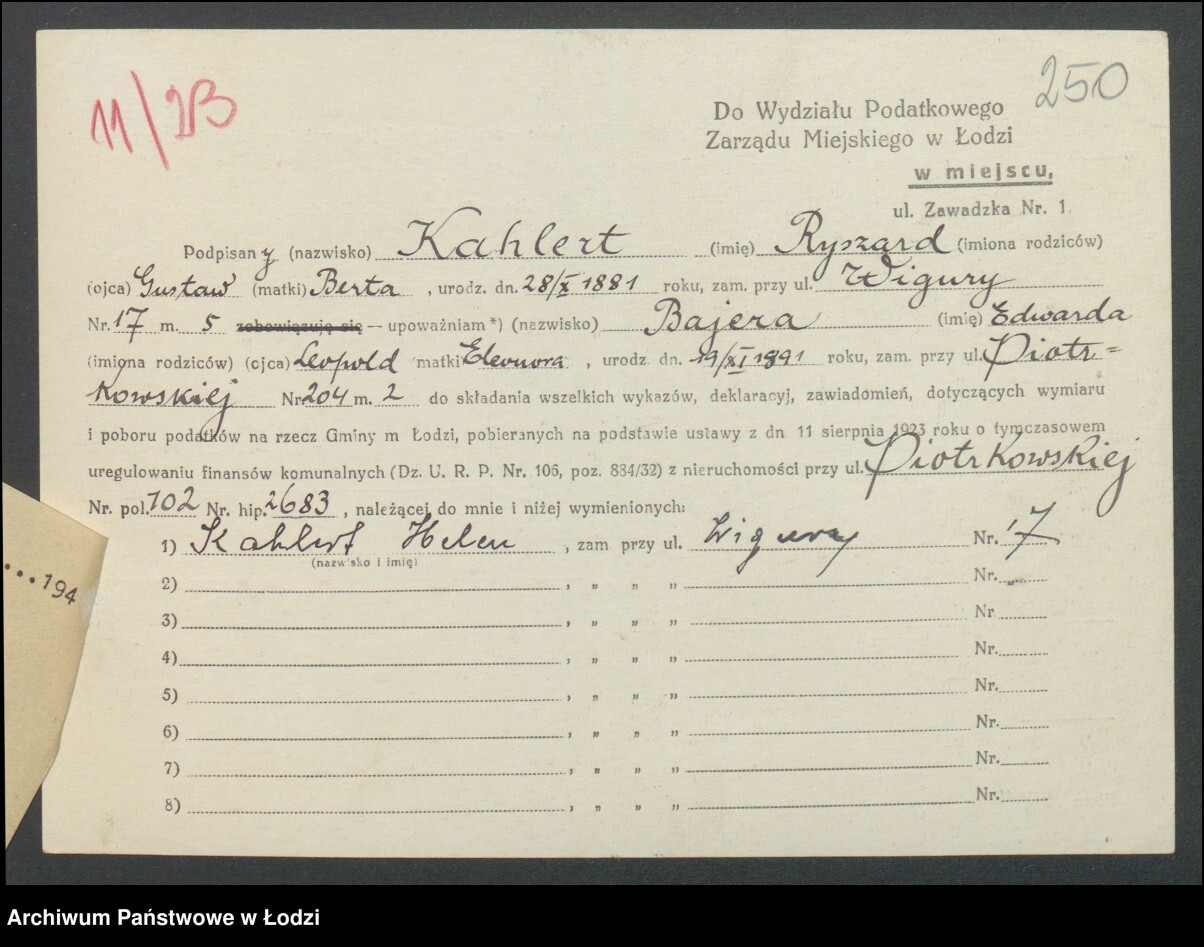 11/2B
250
Do Wydziału Podatkowego
Zarządu Miejskiego w Łodzi
w miejscu,
ul. Zawadzka Nr. 1
Podpisany (nazwisko) Kahlert (imię) Ryszard (imiona rodziców)
(ojca) Gustaw (matki) Berta , urodz. dn. 28/X 1881 roku, zam. przy ul. Wigury
Nr. 17 m. 5 zobowiązuję się — upoważniam *) (nazwisko) Bajera (imię) Edwarda
(imiona rodziców) (ojca) Leopold matki Eleonora , urodz. dn. 19/XI 1891 roku, zam. przy ul. Piotr=
kowskiej Nr 204 m. 2 do składania wszelkich wykazów, deklaracyj, zawiadomień, dotyczących wymiaru
i poboru podatków na rzecz Gminy m Łodzi, pobieranych na podstawie ustawy z dn 11 sierpnia 1923 roku o tymczasowem
uregulowaniu finansów komunalnych (Dz. U. R. P. Nr. 106, poz. 884/32) z nieruchomości przy ul. Piotrkowskiej
Nr. pol. 102 Nr. hip. 2683 , należącej do mnie i niżej wymienionych:
1) Kahlert Helen , zam przy ul. Wigury Nr. 17
(nazwisko i imię)
2) , „ „ „ Nr.
3) , „ „ „ Nr
4) , „ „ „ Nr.
5) , „ „ „ Nr.
6) , „ „ „ Nr.
7) , „ „ „ Nr.
8) , „ „ „ Nr.
...194
Archiwum Państwowe w Łodzi